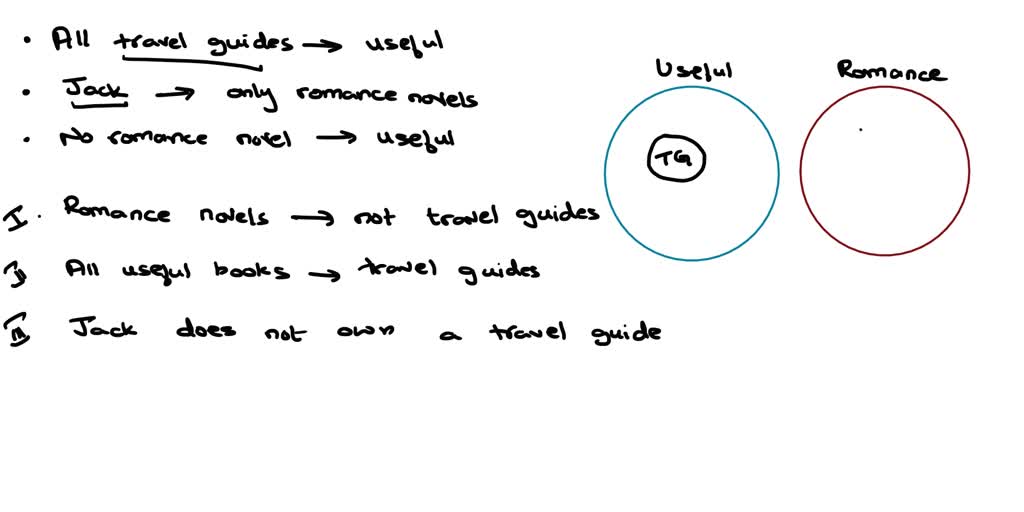 • All travel guides → useful
• Jack → only romance novels
• No romance novel → useful
I. Romance novels → not travel guides
II All useful books → travel guides
III Jack does not own a travel guide
Useful
Romance
TG